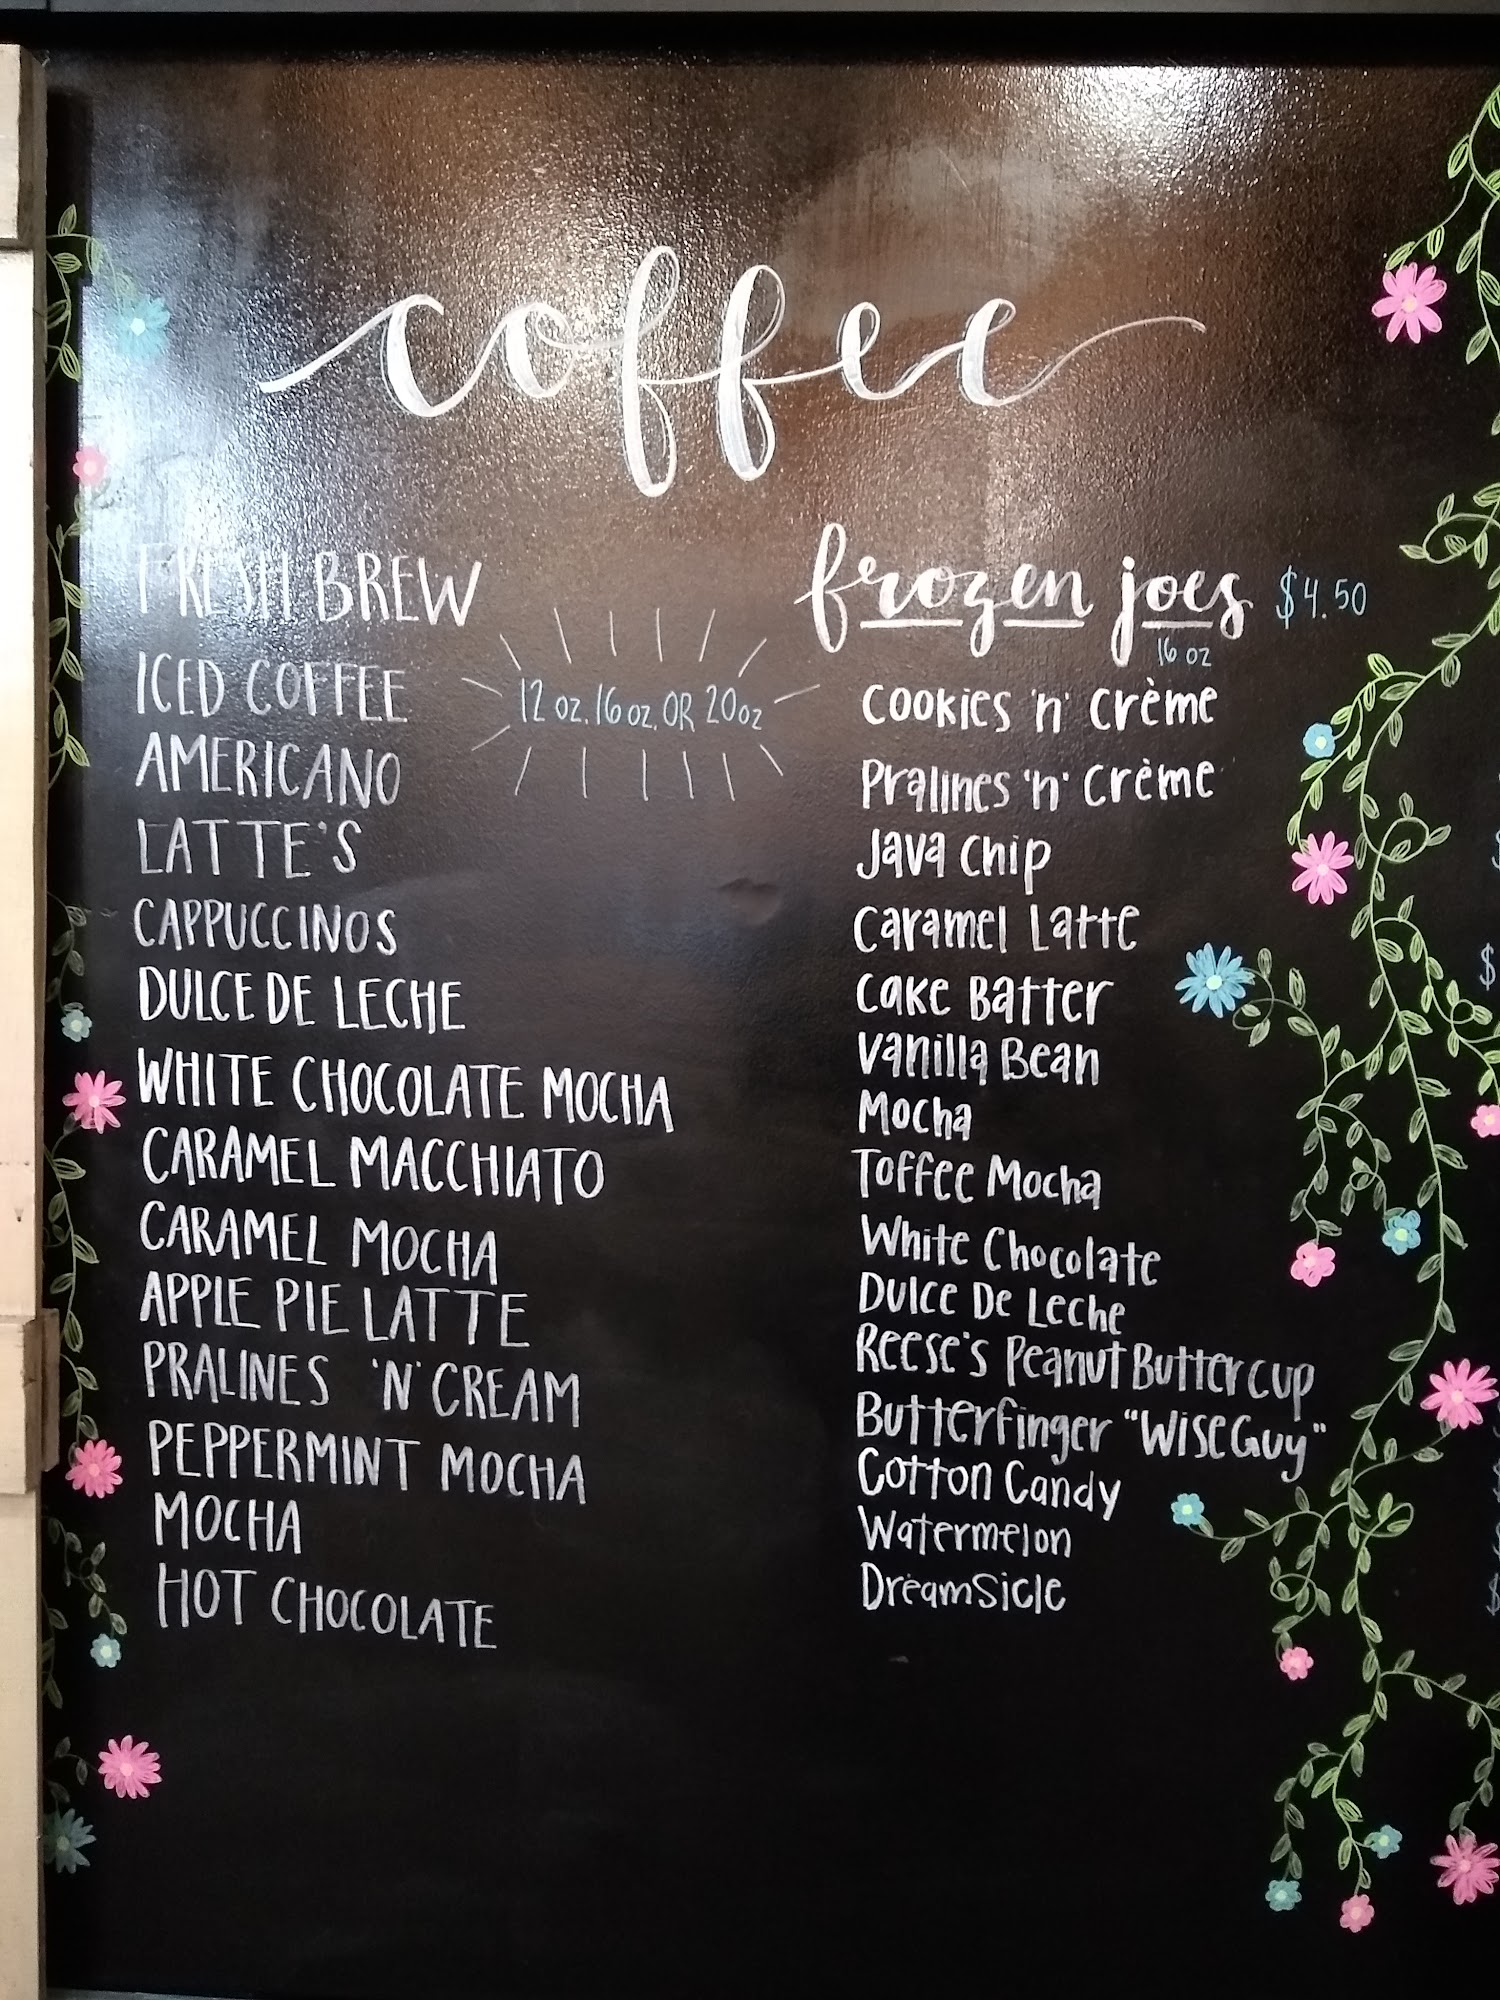 coffee
FRESH BREW
ICED COFFEE
AMERICANO
LATTE'S
CAPPUCCINOS
DULCE DE LECHE
WHITE CHOCOLATE MOCHA
CARAMEL MACCHIATO
CARAMEL MOCHA
APPLE PIE LATTE
PRALINES 'N' CREAM
PEPPERMINT MOCHA
MOCHA
HOT CHOCOLATE
12 oz. 16 oz. OR 20oz
frozen joes $4.50
16 oz
Cookies 'n' Crème
Pralines 'n' Crème
Java Chip
Caramel Latte
Cake Batter
Vanilla Bean
Mocha
Toffee Mocha
White Chocolate
Dulce De Leche
Reese's Peanut Butter cup
Butterfinger "Wise Guy"
Cotton Candy
Watermelon
Dreamsicle
$